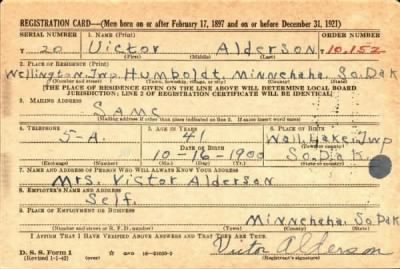 REGISTRATION CARD—(Men born on or after February 17, 1897 and on or before December 31, 1921)
SERIAL NUMBER 1. NAME (Print) ORDER NUMBER
T 20 Victor Alderson T10,152
(First) (Middle) (Last)
2. PLACE OF RESIDENCE (Print)
Wellington, Twp. Humboldt, Minnehaha, So. Dak
(Number and street) (Town, township, village, or city) (County) (State)
[THE PLACE OF RESIDENCE GIVEN ON THE LINE ABOVE WILL DETERMINE LOCAL BOARD
JURISDICTION; LINE 2 OF REGISTRATION CERTIFICATE WILL BE IDENTICAL]
3. MAILING ADDRESS
Same
[Mailing address if other than place indicated on line 2. If same insert word same]
4. TELEPHONE 5. AGE IN YEARS 6. PLACE OF BIRTH
5-A. 41 Wall Lake, Twp
DATE OF BIRTH (Town or county)
10-16-1900 So. Dak.
(Exchange) (Number) (Mo.) (Day) (Yr.) (State or country)
7. NAME AND ADDRESS OF PERSON WHO WILL ALWAYS KNOW YOUR ADDRESS
Mrs. Victor Alderson
8. EMPLOYER'S NAME AND ADDRESS
Self.
9. PLACE OF EMPLOYMENT OR BUSINESS
Minnehaha. So. Dak
(Number and street or R. F. D. number) (Town) (County) (State)
I AFFIRM THAT I HAVE VERIFIED ABOVE ANSWERS AND THAT THEY ARE TRUE.
D. S. S. Form 1
(Revised 1-1-42) (over) Victor Alderson
(Registrant's signature)